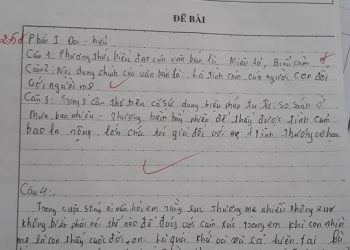 ĐỀ BÀI
Phần I: Đọc - hiểu
Câu 1: Phương thức biểu đạt của văn bản là: Miêu tả, Biểu cảm
Câu 2: Nội dung chính của văn bản là: Là tình cảm của người con đối
với người mẹ
Câu 3: Trong 2 câu thơ trên có sử dụng biện pháp tu từ: So sánh ở
Mưa bao nhiêu - thương bầm bấy nhiêu để thấy được tình cảm
bao la rộng lớn của tác giả đối với mẹ 1 tình thương vô hạn
Câu 4:
Trong cuộc sống ai vẫn hỏi em rằng em thương mẹ nhiều không em
không biết phải nói thế nào để đúng với cảm xúc trong em khi con nhìn
mẹ là con thấy cuộc đời